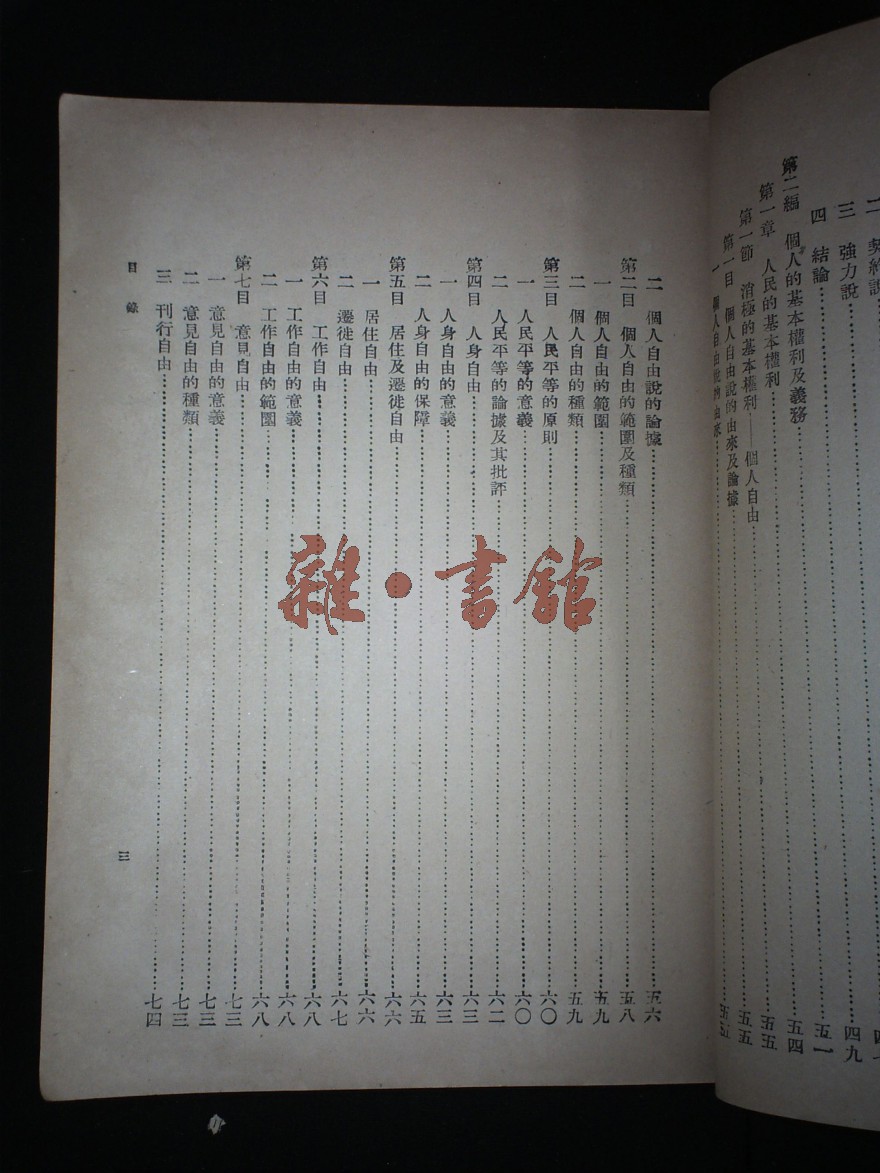 二 契約說
三 強力說……四九
四 結論……五一
第二編 個人的基本權利及義務……五四
第一章 人民的基本權利……五五
第一節 消極的基本權利——個人自由……五五
第一目 個人自由說的由來及論據……五五
一 個人自由說的由來
二 個人自由說的論據……五六
第二目 個人自由的範圍及種類……五八
一 個人自由的範圍……五九
二 個人自由的種類……五九
第三目 人民平等的原則……六〇
一 人民平等的意義……六〇
二 人民平等的論據及其批評……六二
第四目 人身自由……六三
一 人身自由的意義……六三
二 人身自由的保障……六五
第五目 居住及遷徙自由……六六
一 居住自由……六六
二 遷徙自由……六七
第六目 工作自由……六八
一 工作自由的意義……六八
二 工作自由的範圍……六八
第七目 意見自由……七三
一 意見自由的意義……七三
二 意見自由的種類……七三
三 刊行自由……七四
目錄
三
雜·書館